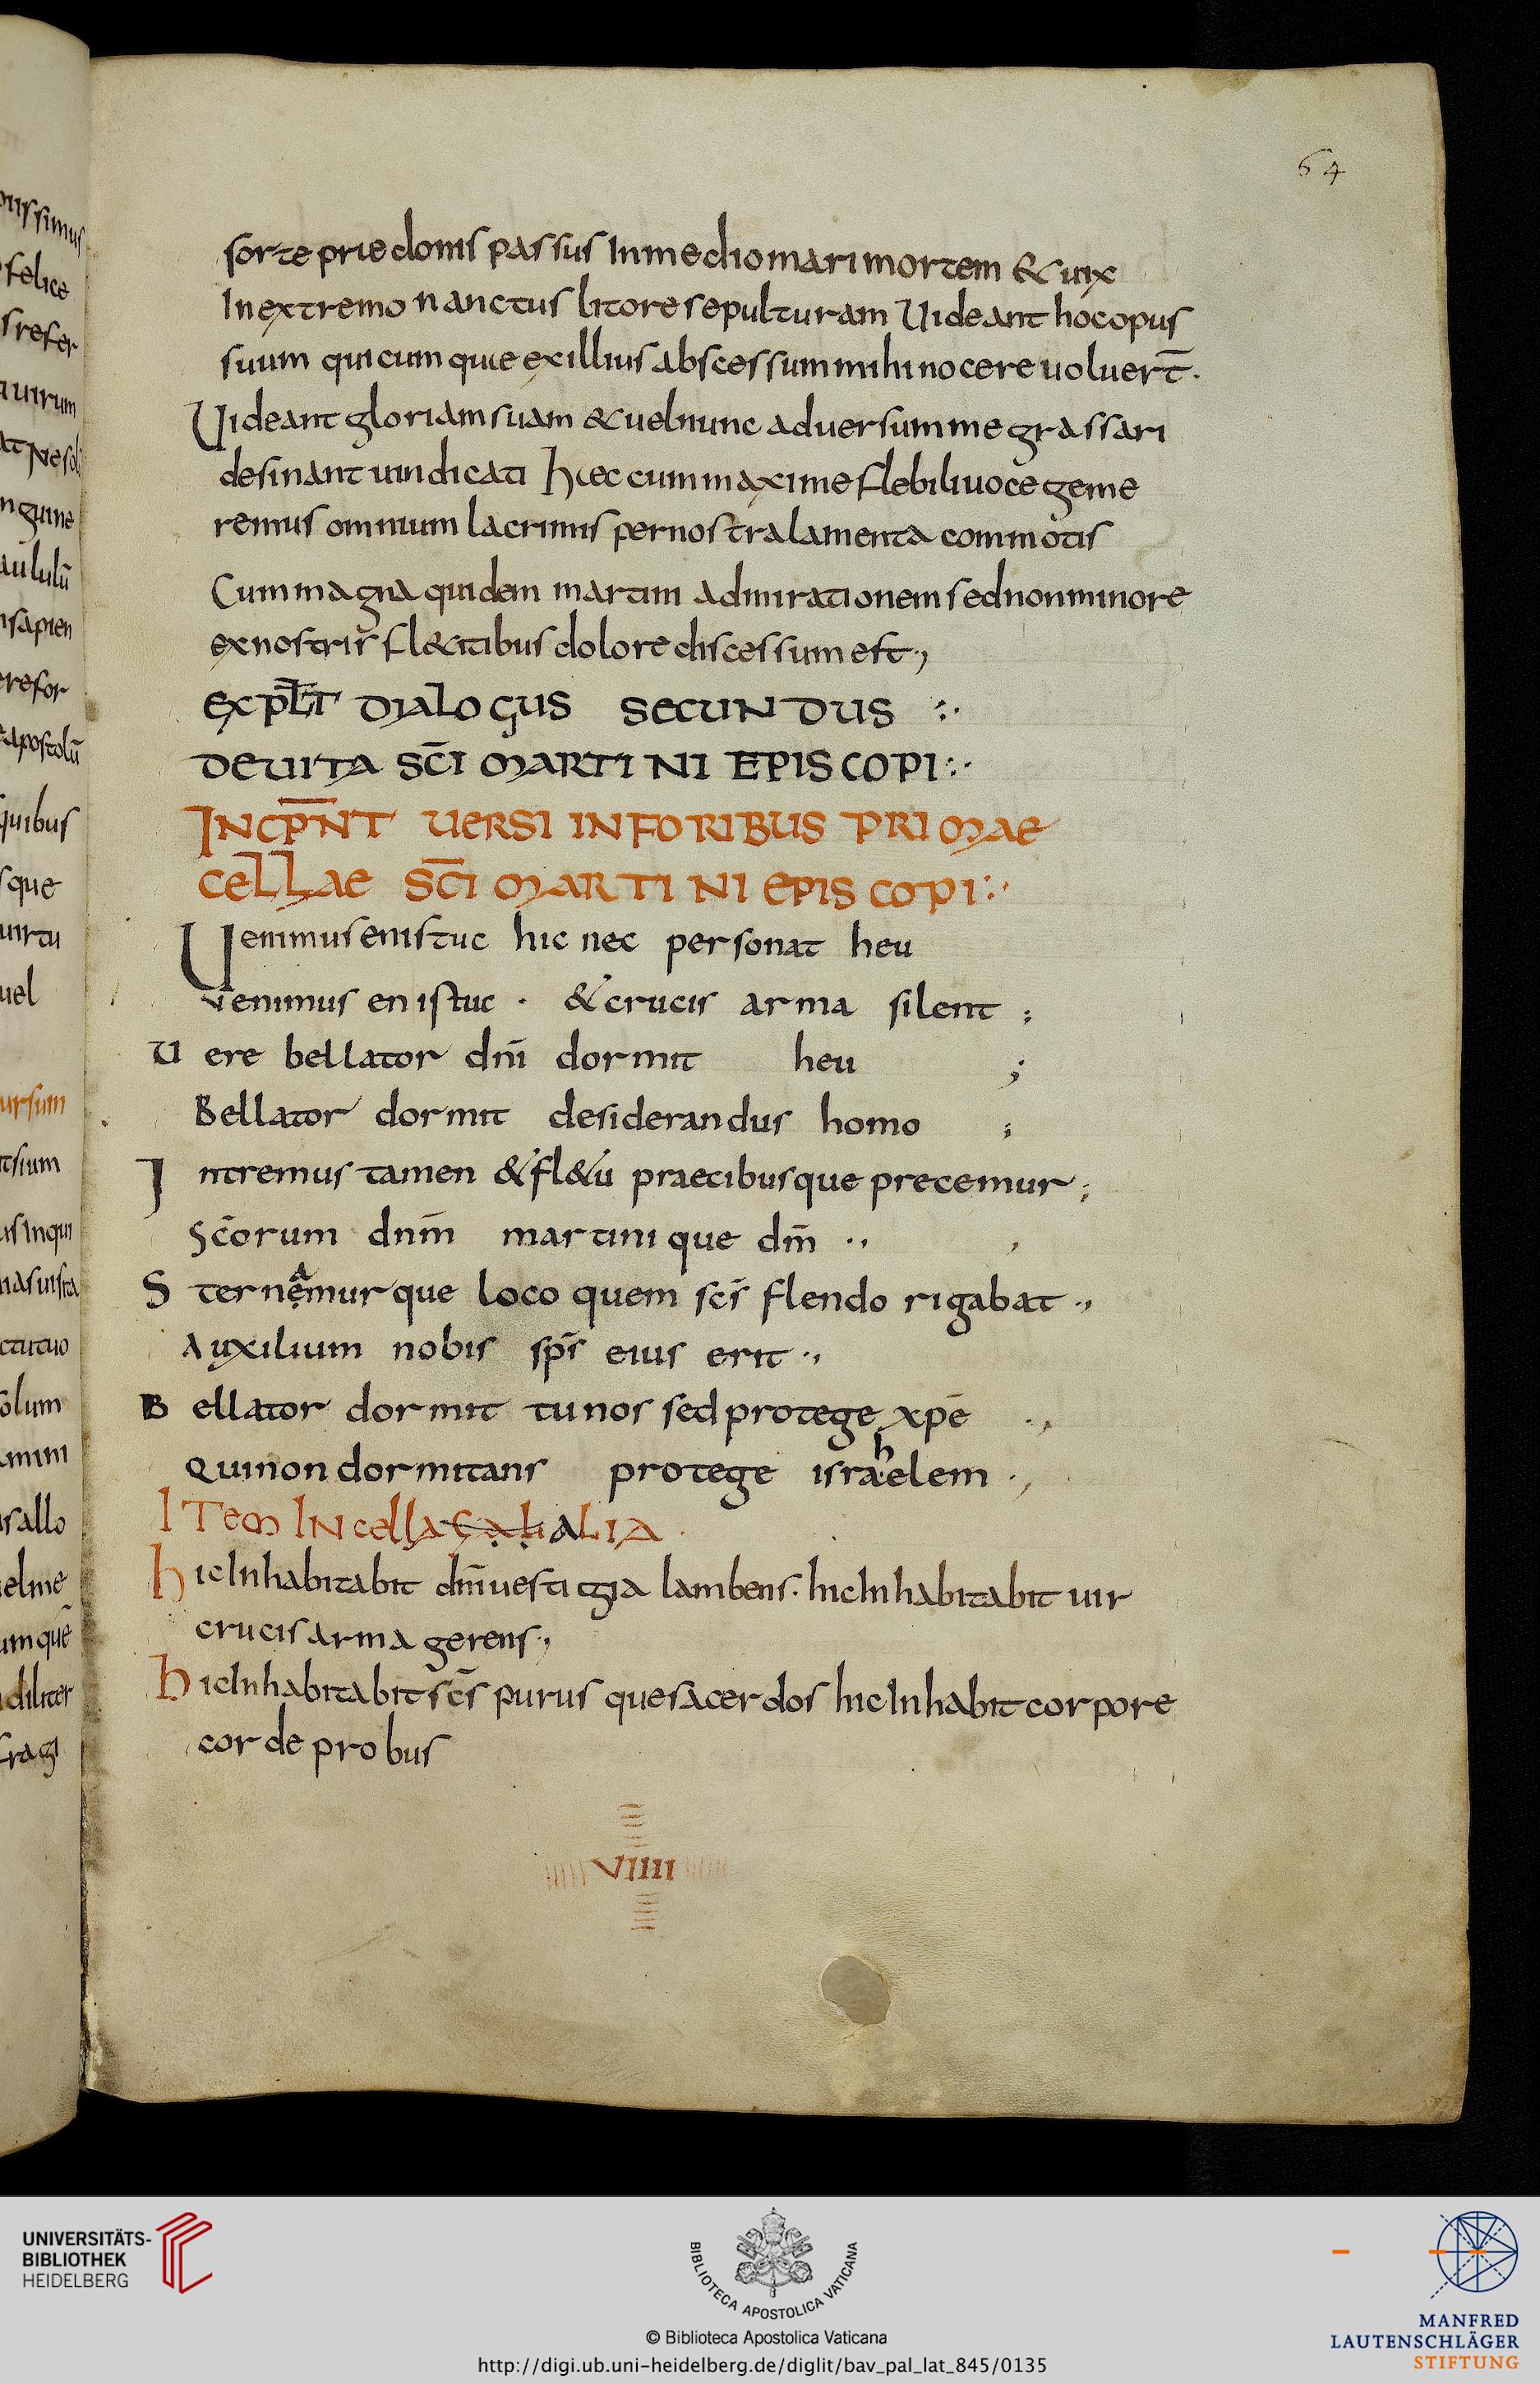 64
sorte priedonis passus In medio mari mortem & uix
In extremo nanctus litore sepulturam Uideant hoc opus
suum quicumquie ex illius abscessum mihi nocere uoluert̄.
Uideant gloriam suam & uel nunc aduersum me grassari
desinant uindicati hiec cum maxime flebili uoce geme
remus omnium lacrimis per nostra lamenta commotis
Cum magna quidem martini admirationem sed non minore
ex nostris fl&itibus dolore discessum est·,
EXPLT̄ DIALOGUS SECUNDUS :·
DE UITA SC̄I MARTINI EPISCOPI :·
INCP̄NT UERSI IN FORIBUS PRIMAE
CELLAE SC̄I MARTINI EPISCOPI :·
Uenimus en istuc hic nec personat heu
Venimus en istuc · & crucis arma silent ;
U ere bellator dn̄i dormit heu ;
Bellator dormit desiderandus homo ;
I ntremus tamen & fl&u praecibusque precemur ;
Sc̄orum dnm̄ martinique dm̄ ·,
S ternęamurque loco quem sc̄s flendo rigabat ·,
Auxilium nobis sp̄s eius erit ·,
B ellator dormit tu nos sed protege xpē ·,
Qui non dormitans protege israhelem ·,
ITEM IN cella Cali ALIA ·
hic Inhabitabit dn̄i uestigia lambens · hic Inhabitabit uir
crucis arma gerens ·,
hic Inhabitabit sc̄s purusque sacerdos hic Inhabit corpore
corde probus
VIIII
UNIVERSITÄTS-
BIBLIOTHEK
HEIDELBERG
BIBLIOTECA APOSTOLICA VATICANA
© Biblioteca Apostolica Vaticana
http://digi.ub.uni-heidelberg.de/diglit/bav_pal_lat_845/0135
MANFRED
LAUTENSCHLÄGER
STIFTUNG